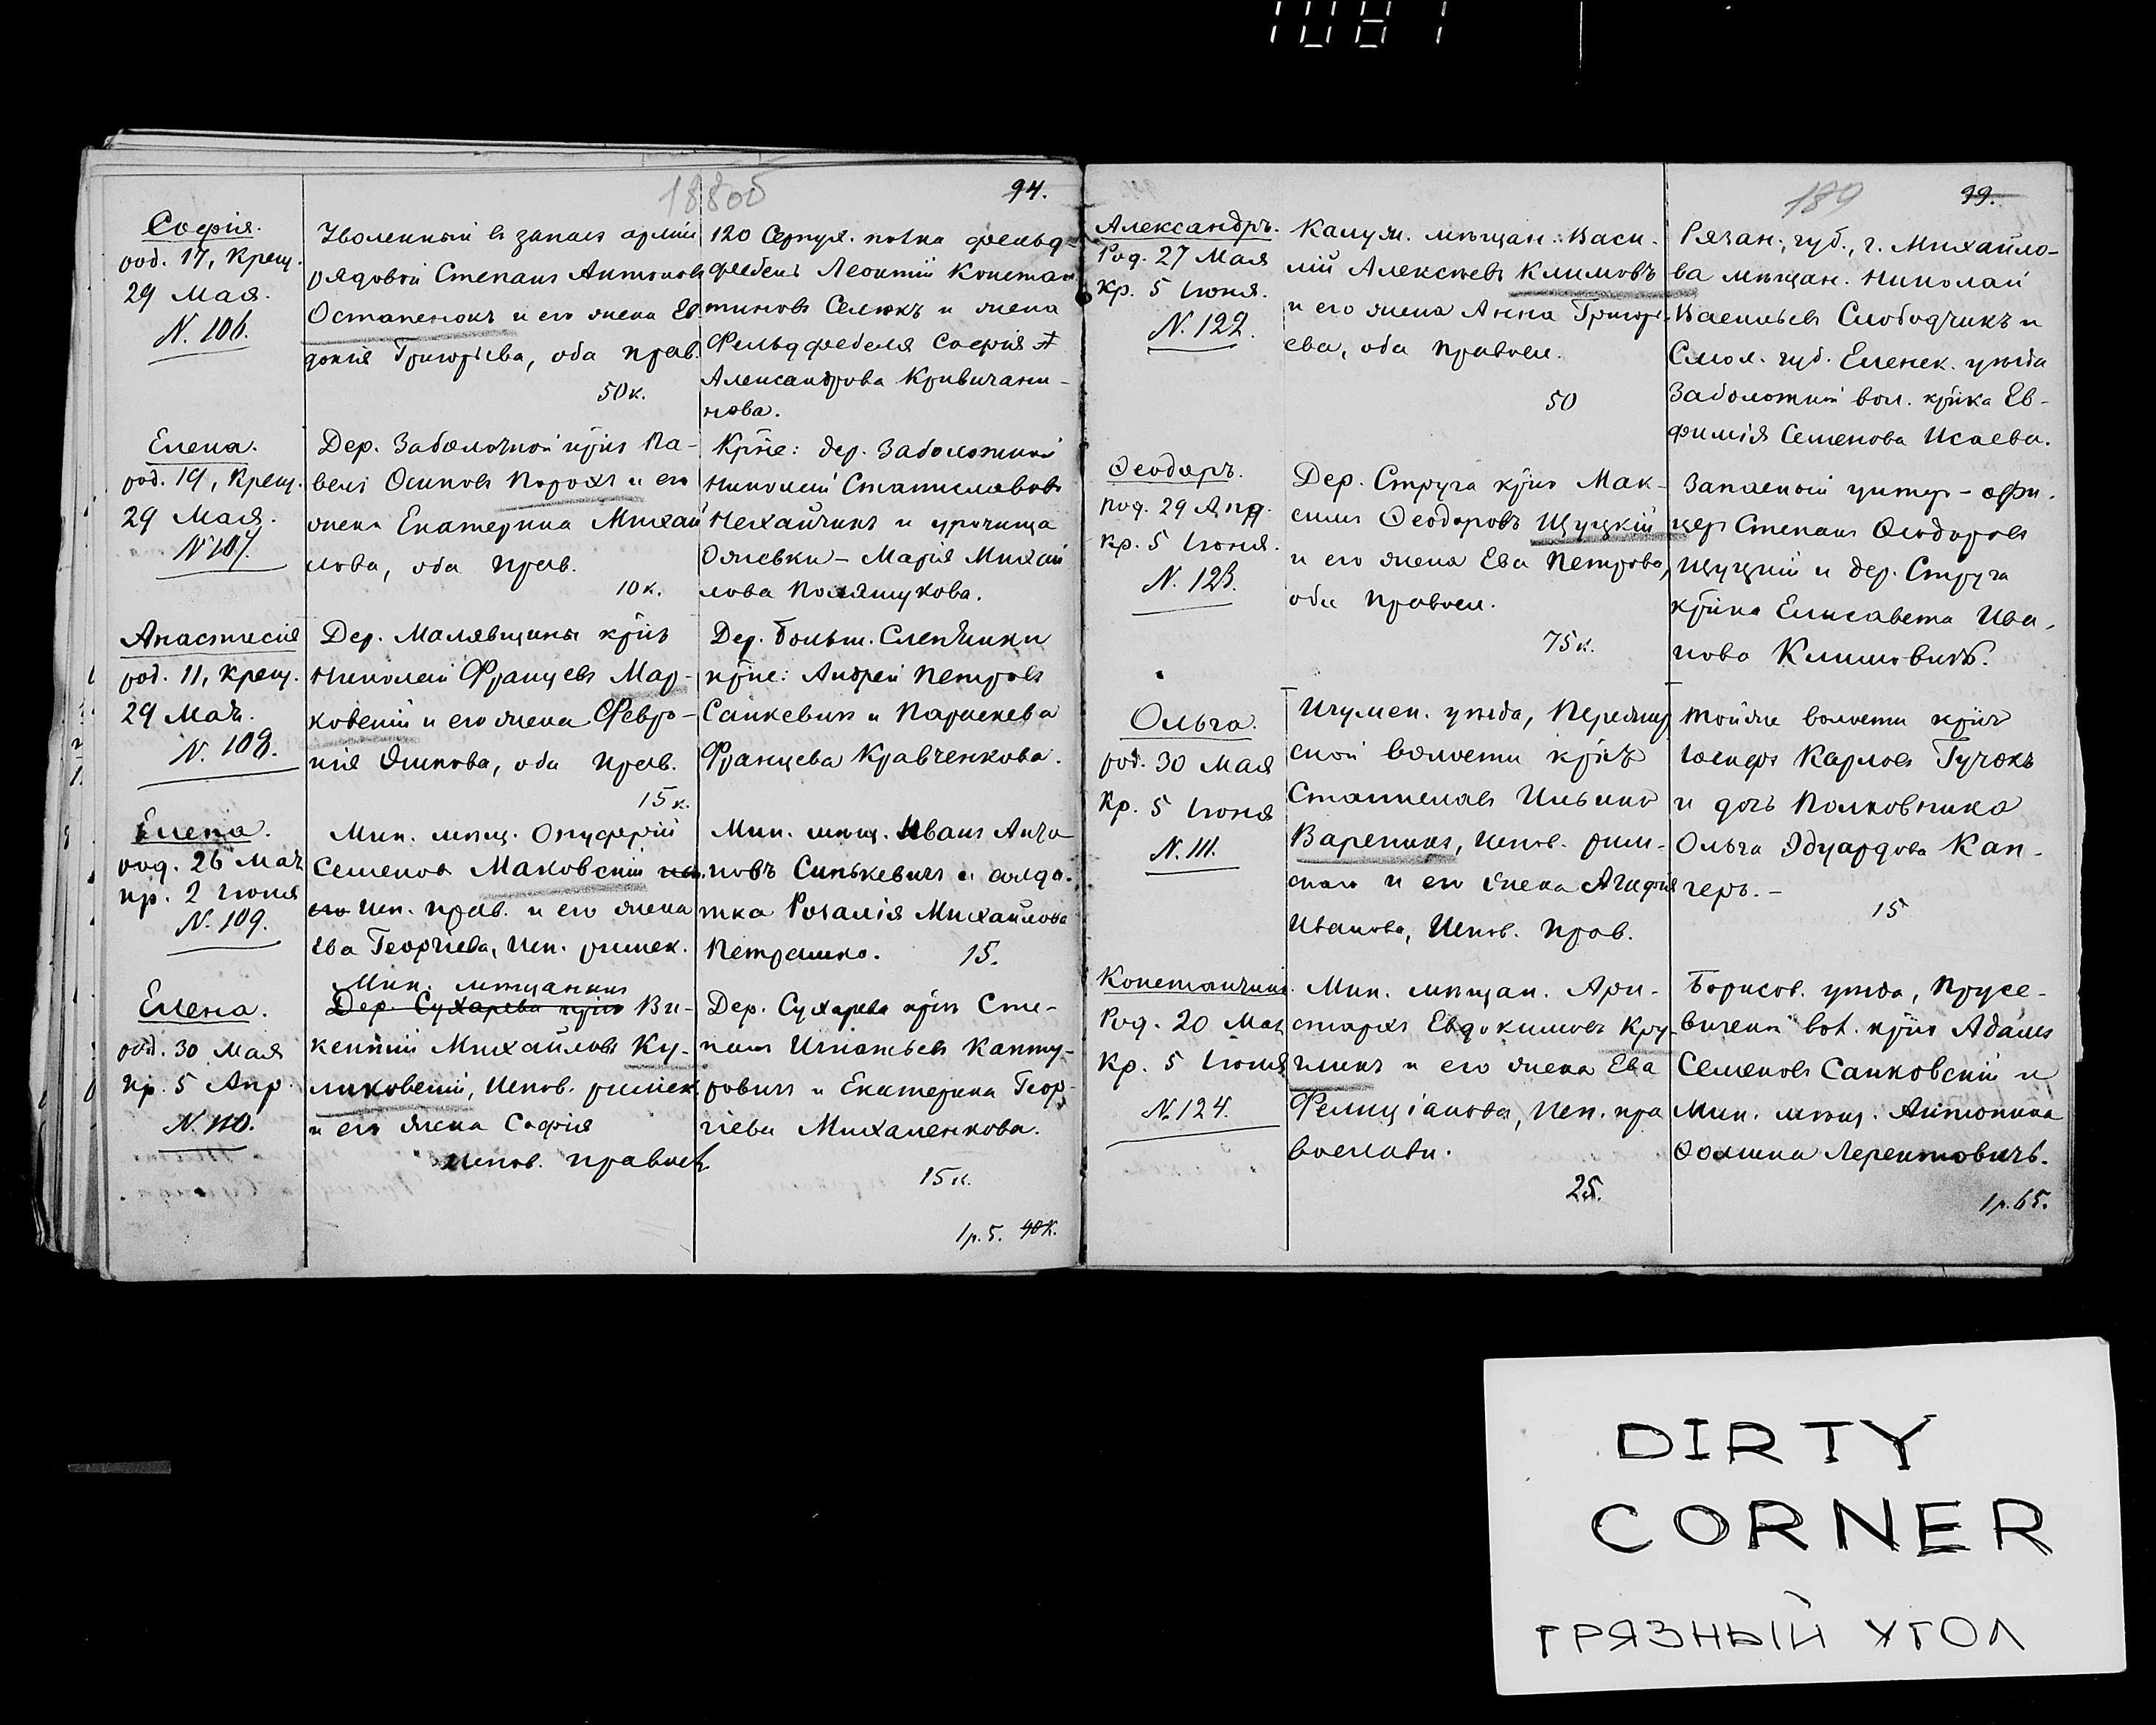 94.
София.
род. 17, Крещ.
29 Мая.
N. 106.
Уволенный въ запасъ арміи
рядовой Степанъ Антоновъ
Остапенокъ и его жена Ев
докія Григорьева, оба прав.
50 к.
120 Серпух. полка фельд-
фебель Леонтій Констан
тиновъ Селюкъ и жена
Фельдфебеля Софія
Александрова Кривичани-
нова.
Елена.
род. 19, Крещ.
29 Мая.
N 107.
Дер. Заболотной кр̃нъ Па-
велъ Осиповъ Порохъ и его
жена Екатерина Михай
лова, оба прав.
10 к.
Кр̃не: дер. Заболотной
Николай Станиславовъ
Нехайчикъ и урочища
Ольевки - Марія Михай
лова Полящукова.
Анастасія
род. 11, Крещ.
29 Мая.
N. 108.
Дер. Малявщины кр̃нъ
Николай Францевъ Мар-
ковскій и его жена Февро-
нія Якимова, оба прав.
15 к.
Дер. Больш. Слепянки
кр̃не: Андрей Петровъ
Санкевичъ и Параскева
Францева Кравченкова.
Елена.
род. 26 Мая
кр. 2 Іюня
N. 109.
Мин. мѣщ. Онуфрій
Семеновъ Маковскій
исп. прав. и его жена
Ева Георгіева, исп. римск.
Мин. мѣщ. Иванъ Анто
новъ Синькевичъ и солда-
тка Розалія Михайлова
Петрашко. 15.
Елена.
род. 30 Мая
кр. 5 Апр.
N. 110.
Мин. мѣщанинъ
Дер. Сухарева кр̃нъ Ви-
кентій Михайловъ Ку-
ликовскій, испов. римск.
и его жена Софія
испов. правосл.
Дер. Сухарева кр̃нъ Сте-
панъ Игнатьевъ Канту-
ровичъ и Екатерина Геор-
гіева Михаленкова.
15 к.
1 р. 5. 40 к.
189 99.
Александръ.
Род. 27 Мая
Кр. 5 Іюня.
N. 122.
Калуж. мѣщан. Васи-
лій Алексѣевъ Климовъ
и его жена Анна Григорь-
ева, оба правосл.
50
Рязан. губ., г. Михайло-
ва мѣщан. Николай
Васильевъ Слободчикъ и
Смол. губ. Еленск. уѣзда
Заболотной вол. кр̃нка Ев-
фимія Семенова Исаева.
Ѳеодоръ.
род. 29 Апр.
Кр. 5 Іюня.
N. 123.
Дер. Струга кр̃нъ Мак-
симъ Ѳеодоровъ Щуцкій
и его жена Ева Петрова,
оба правосл.
75 к.
Запасный унтер-офи-
церъ Степанъ Ѳеодоровъ
Щуцкій и дер. Струга
кр̃нка Елисавета Ива-
нова Климовичъ.
Ольга.
род. 30 Мая
Кр. 5 Іюня
N. 111.
Игумен. уѣзда,
ской волости кр̃нъ
Станиславъ Ильинъ
Вареникъ, испов. рим-
скаго и его жена Агафія
Иванова, испов. прав.
Тойже волости кр̃нъ
Іосифъ Карловъ Гучокъ
и дочь Полковника
Ольга Эдуардова Кан-
геръ. -
15
Константинъ.
Род. 20 Мая
Кр. 5 Іюня
N. 124.
Мин. мѣщан. Ари-
стархъ Евдокимовъ Кру-
гликъ и его жена Ева
Фелиціанова, исп. пра
вославн.
25.
Борисов. уѣзда, Прусе-
вичской вол. кр̃нъ Адамъ
Семеновъ Санковскій и
Мин. мѣщ. Антонина
Ѳомина Лерентовичъ.
1 р. 65.
DIRTY
CORNER
ГРЯЗНЫЙ УГОЛ